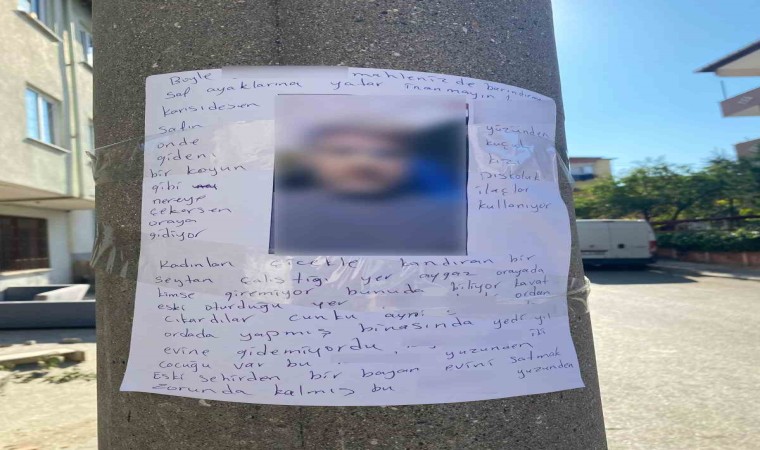 Böyle mahlenizde barındıran
saf ayaklarına yatar inanmayın!
karısıdesen
satın
önde
gideni
bir koyun
gibi
nereye
çekersen
oraya
gidiyor
yüzünden
kızı
Piskolok
ilaçlar
kullanıyor
Kadınları çiçekle kandıran bir
şeytan çalıştığı yer aygaz orayada
kimse giremiyor bunuda biliyor kavat
eski oturduğu yer ordan
çıkardılar çünkü ayni
ordada yapmış binasında yedi yıl
evine gidemiyordu iki
çocuğu var bu yüzünden
Eski şehirden bir bayan evini satmak
zorunda kalmış bu yüzünden